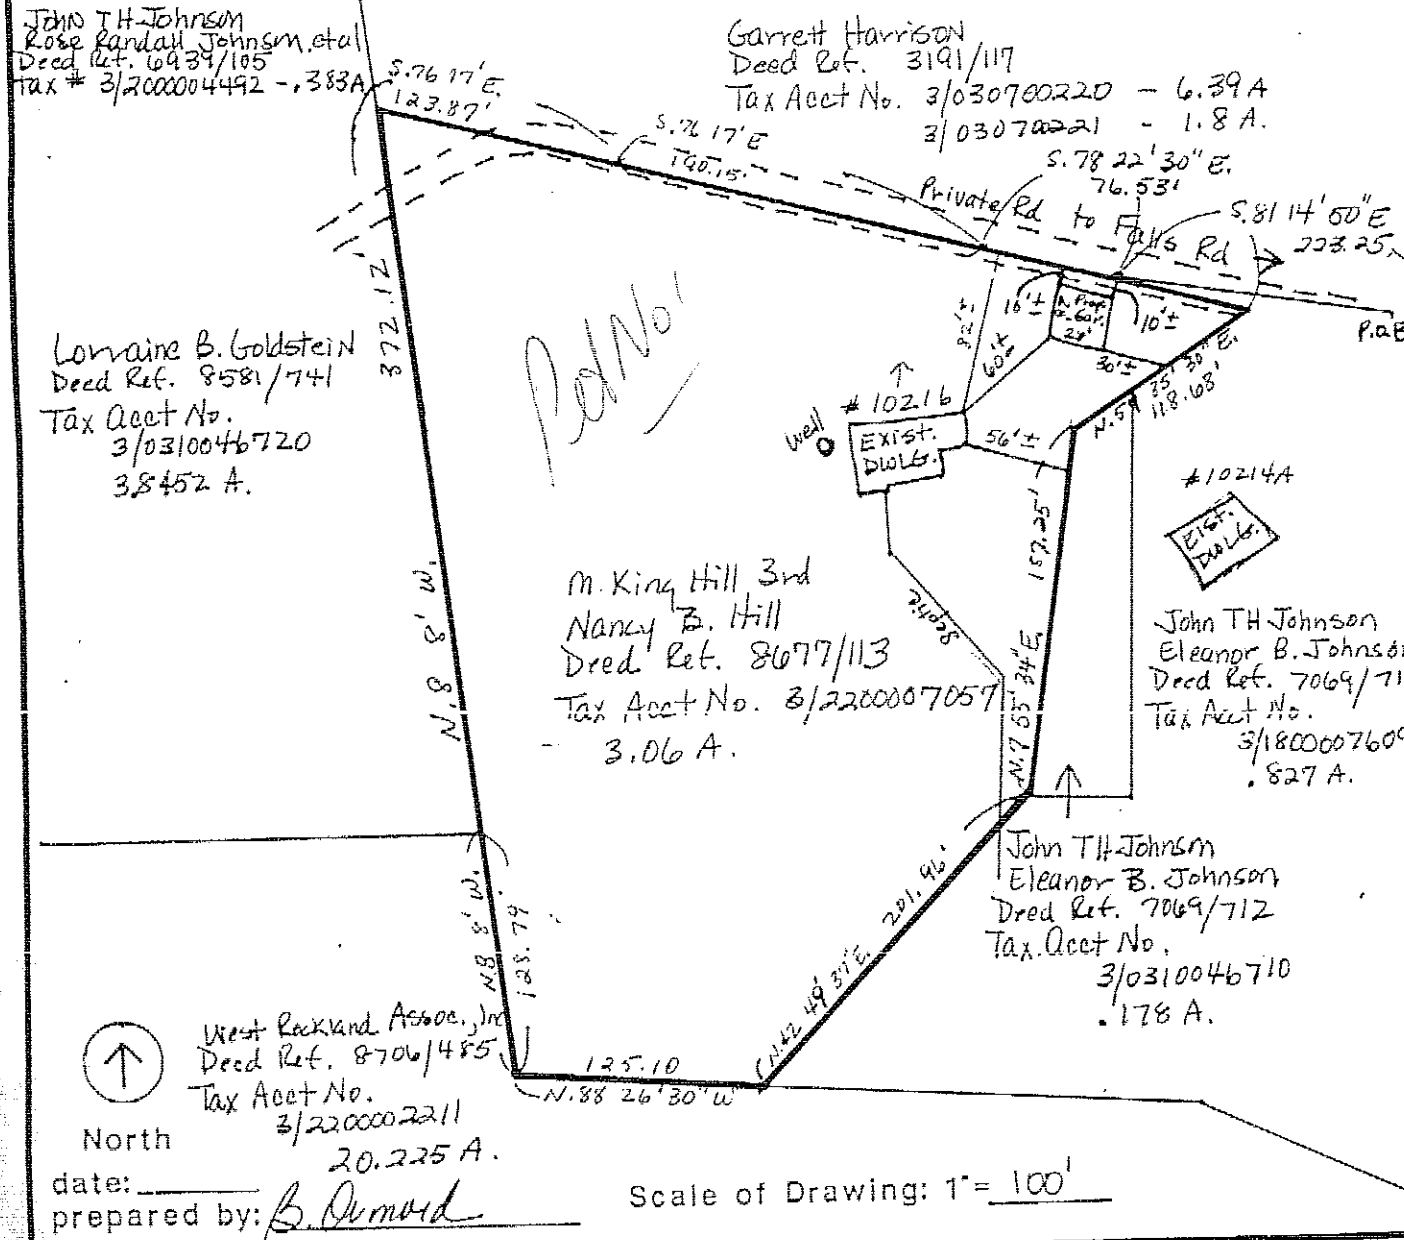 John TH Johnson
Rose Randall Johnson, etal
Deed Ref. 6939/105
Tax # 3/2000004492 - .383A
Garrett Harrison
Deed Ref. 3191/117
Tax Acct No. 3/030700220 - 6.39 A
3/030700221 - 1.8 A.
S.76 17' E.
123.87'
S.76 17' E
190.15'
S.78 22' 30" E.
76.53'
S.81 14' 50" E
223.25
Private Rd to Falls Rd
P.O.B
372.12'
N.8 8' W.
Lorraine B. Goldstein
Deed Ref. 8581/741
Tax Acct No.
3/0310046720
3.8452 A.
Pet No. 1
82'±
16'±
Prop.
Gar.
10'±
60'±
30'±
N.59 35' 30" E.
118.68'
# 10216
Well
EXIST.
DWLG.
56'±
157.25'
N.7 55' 34" E.
Septic
#10214A
EXIST.
DWLG.
M. King Hill 3rd
Nancy B. Hill
Deed Ref. 8677/113
Tax Acct No. 3/2200007057
3.06 A.
John TH Johnson
Eleanor B. Johnson
Deed Ref. 7069/71
Tax Acct No.
3/1800007609
.827 A.
John TH Johnson
Eleanor B. Johnson
Deed Ref. 7069/712
Tax. Acct No.
3/0310046710
.178 A.
N8 8' W.
128.79
201.96'
N.42 49' 37" E.
125.10
N.88 26' 30" W
West Rockland Assoc., Inc
Deed Ref. 8706/485
Tax Acct No.
3/2200002211
20.225 A.
North
date:
prepared by:
Scale of Drawing: 1"= 100'